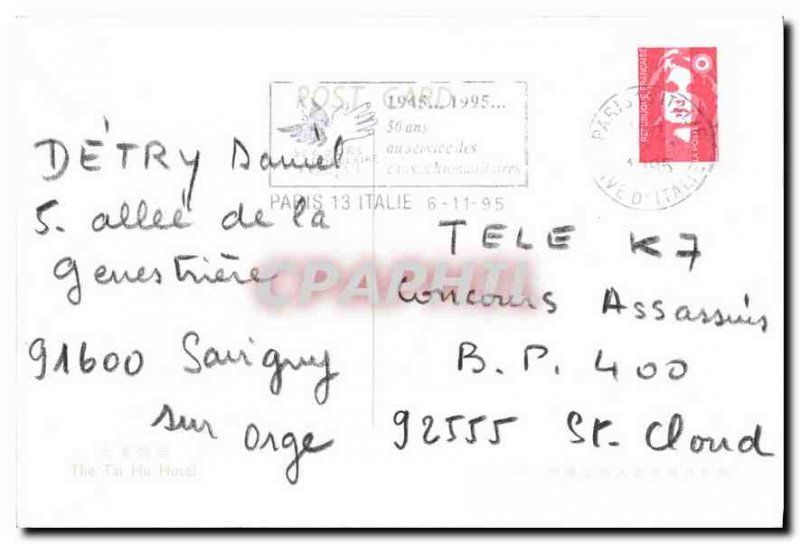 POST CARD
1945... 1995...
50 ans
au service des
causes humanitaires
PARIS 13 ITALIE 6-11-95
REPUBLIQUE FRANÇAISE
LA POSTE
PARIS
AVE D'ITALIE
DÉTRY Daniel
5. allée de la
Genestrière
91600 Savigny
sur Orge
TELE K7
Concours Assassins
B.P. 400
92555 St. Cloud
CPAPHIL
The Tai Hu Hotel